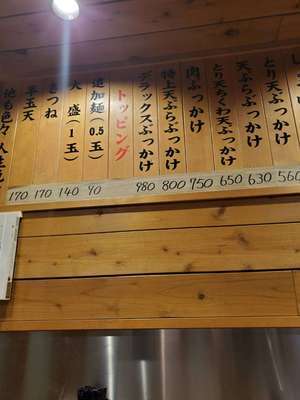 とり天ぶっかけ 560
天ぷらぶっかけ 630
とり天ちくわ天ぶっかけ 650
肉ぶっかけ 750
特上天ぷらぶっかけ 800
デラックスぶっかけ 980
トッピング
追加麺(0.5玉) 90
大盛(1玉) 140
きつね 170
半玉天 170
他も色々